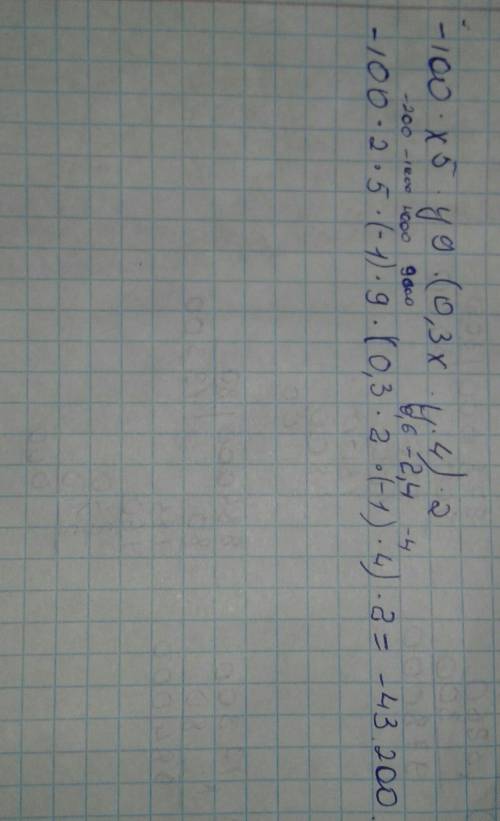 -100 · x5 · y9 · (0,3x · y · 4) · 2
-200 -1000 1000 9000 0,6 -2,4 -4
-100 · 2 · 5 · (-1) · 9 · (0,3 · 2 · (-1) · 4) · 2 = -43.200